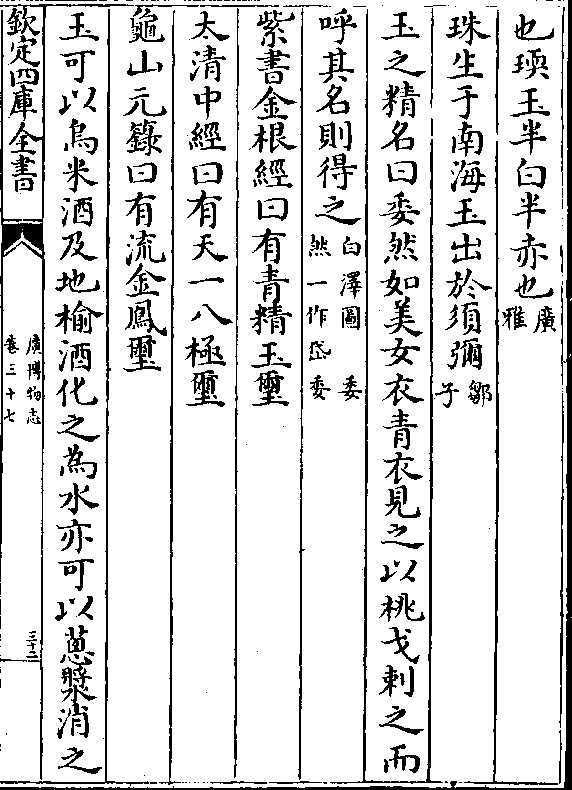 也瑌玉半白半赤也廣雅
珠生于南海玉出於須彌鄒子
玉之精名曰委然如美女衣青衣見之以桃戈刺之而
呼其名則得之白澤圖 委然一作岱委
紫書金根經曰有青精玉璽
太清中經曰有天一八極璽
龜山元籙曰有流金鳳璽
玉可以烏米酒及地榆酒化之為水亦可以蔥漿消之
欽定四庫全書
廣博物志
卷三十七
三十二